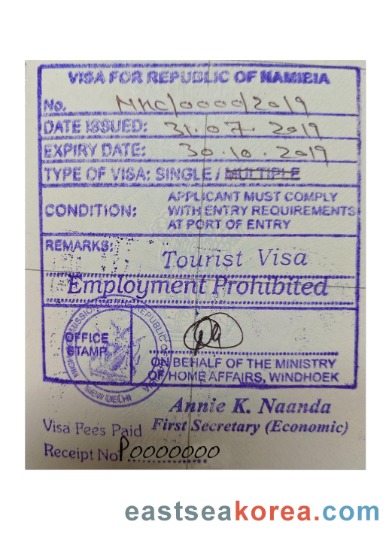 VISA FOR REPUBLIC OF NAMIBIA
No. NHC/0000/2019
DATE ISSUED: 31.07.2019
EXPIRY DATE: 30.10.2019
TYPE OF VISA: SINGLE / MULTIPLE
CONDITION: APPLICANT MUST COMPLY
WITH ENTRY REQUIREMENTS
AT PORT OF ENTRY
REMARKS:
Tourist Visa
Employment Prohibited
OFFICE
STAMP
NEW DELHI
ON BEHALF OF THE MINISTRY
OF HOME AFFAIRS, WINDHOEK
Annie K. Naanda
First Secretary (Economic)
Visa Fees Paid
Receipt No P0000000
eastseakorea.com